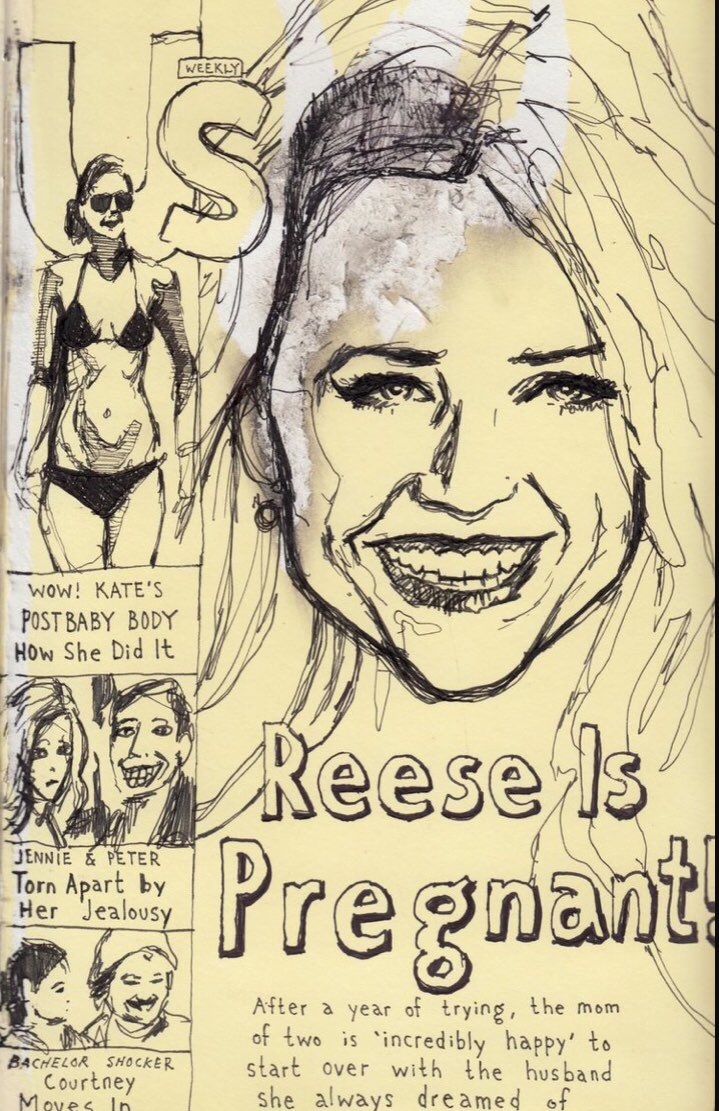 US
WEEKLY
WOW! KATE'S
POSTBABY BODY
How She Did It
JENNIE & PETER
Torn Apart by
Her Jealousy
BACHELOR SHOCKER
Courtney
Moves In
Reese Is
Pregnant!
After a year of trying, the mom
of two is 'incredibly happy' to
start over with the husband
she always dreamed of